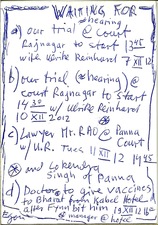 WAITING FOR
hearing
a) our trial @ court
Rajnagar to start 13 45
wife Ulrike Reinhard 7 XII 12
b) our trial hearing @
court Rajnagar to start
14 30 w/ Ulrike Reinhard
10 XII 2012
c) Lawyer Mr. RAO @ Panna
w/ U.R. Tues 11 XII 12 1945
and Lokendra
Singh of Panna
d) Doctors to give vaccines
to Bharat from Kabel Hotel
after Fynn bit him
manager @ hotel